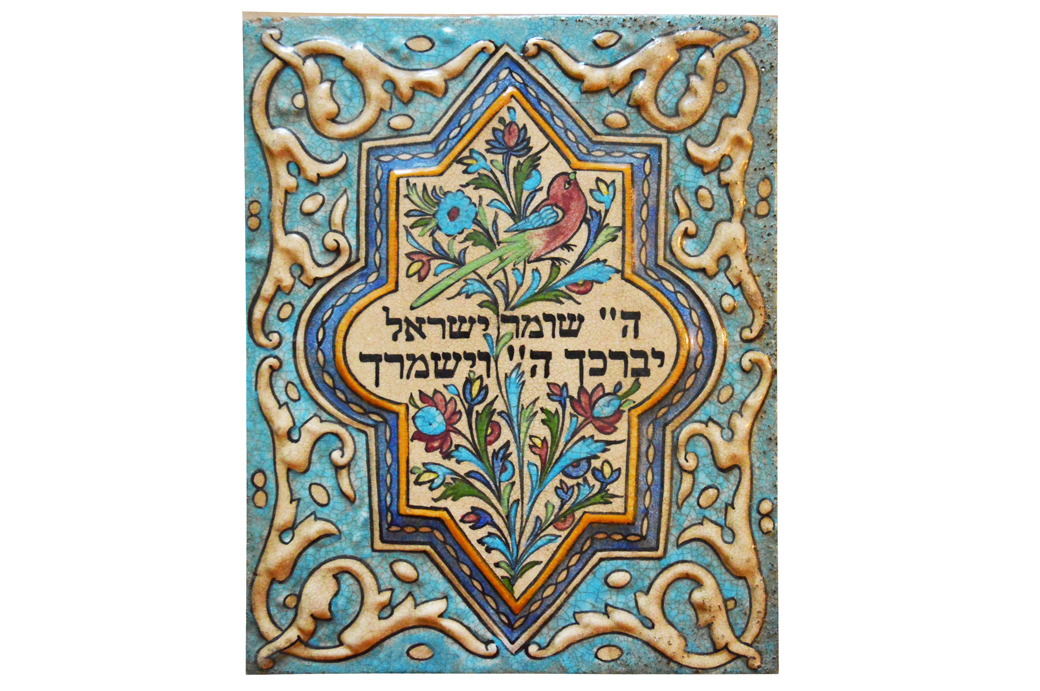 ה'' שומר ישראל
יברכך ה'' וישמרך